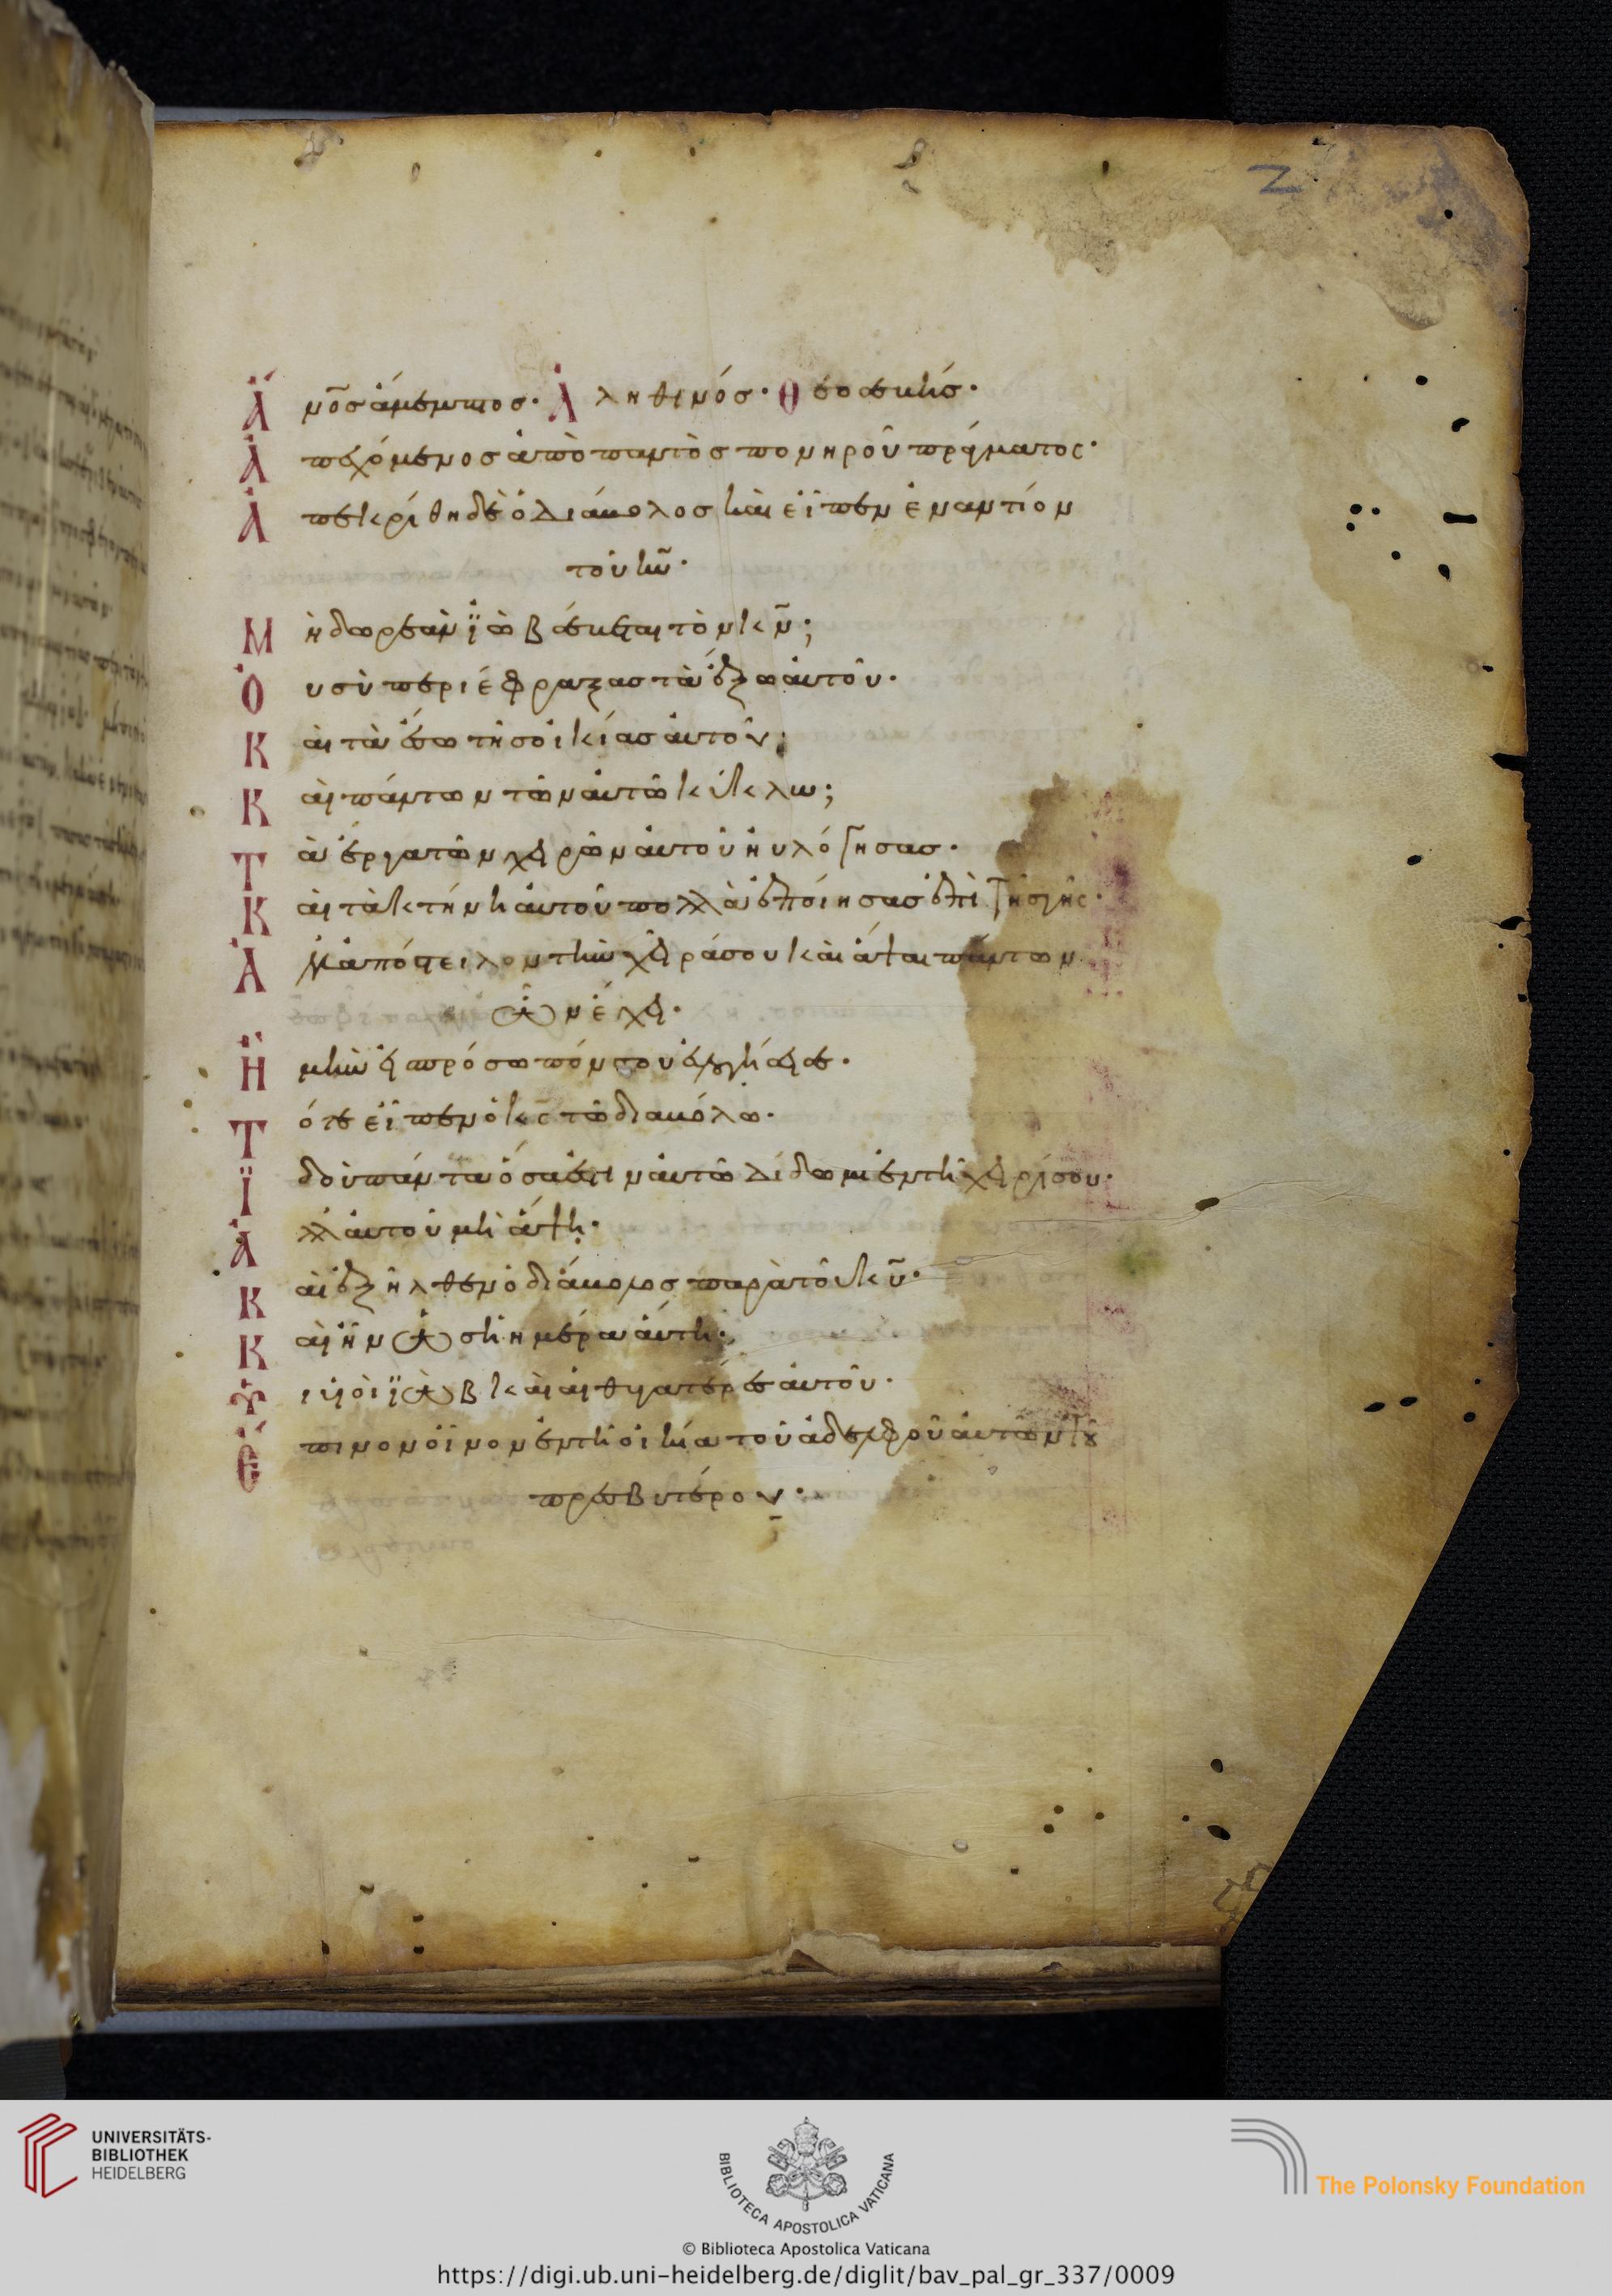 Ἄνο̅σ ἄμεμπτος· Ἀληθινόσ· Θεοσεβήσ·
Ἀπεχόμενοσ ἀπὸ παντὸσ πονηροῦ πράγματος·
Ἀπεκρίθη δὲ ὁ διάβολοσ καὶ εἶπεν ἐναντίον
τοῦ κῡ·
Μὴ δωρεὰν ϊὼβ σέβεται τὸν κν̅;
Ὀυ σὺ περιέφραξασ τὰ ἔξω αὐτοῦ·
Καὶ τὰ ἔσω τῆσ οἰκίασ αὐτοῦ;
Καὶ πάντων τῶν αὐτῶ κύκλω;
Τὰ ἔργα τῶν χειρῶν αὐτοῦ ηὐλόγησασ·
Καὶ τὰ κτήνη αὐτοῦ πολλὰ ἐποίησασ ἐπὶ τῆσ γῆς·
Ἀλλὰ ἀπόστειλον τὴν χεῖρά σου καὶ ἅψαι πάντων
ὧν ἔχει·
Ἦ μὴν εἰσ πρόσωπόν σου εὐλογήσει σε·
Τότε εἶπεν ὁ κς̅ τῶ διαβόλω·
Ϊδοὺ πάντα ὅσα ἐστιν αὐτῶ δίδωμι ἐν τῆ χειρί σου·
Ἀλλ᾽ αὐτοῦ μὴ ἅψη·
Καὶ ἐξῆλθεν ὁ διάβολοσ παρὰ τοῦ κυ̅·
Καὶ ἦν ὡσ ἡ ἡμέρα αὕτη·
Ὑιοὶ ϊὼβ καὶ αἱ θυγατέρεσ αὐτοῦ·
Ἔπινον οἶνον ἐν τῆ οἰκία τοῦ ἀδελφοῦ αὐτῶν τοῦ
πρεσβυτέρου·
2
UNIVERSITÄTS-
BIBLIOTHEK
HEIDELBERG
BIBLIOTECA APOSTOLICA VATICANA
The Polonsky Foundation
© Biblioteca Apostolica Vaticana
https://digi.ub.uni-heidelberg.de/diglit/bav_pal_gr_337/0009